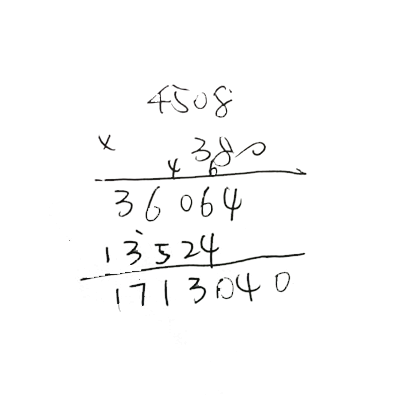 4508
× 380
4 6
36064
13524
1713040